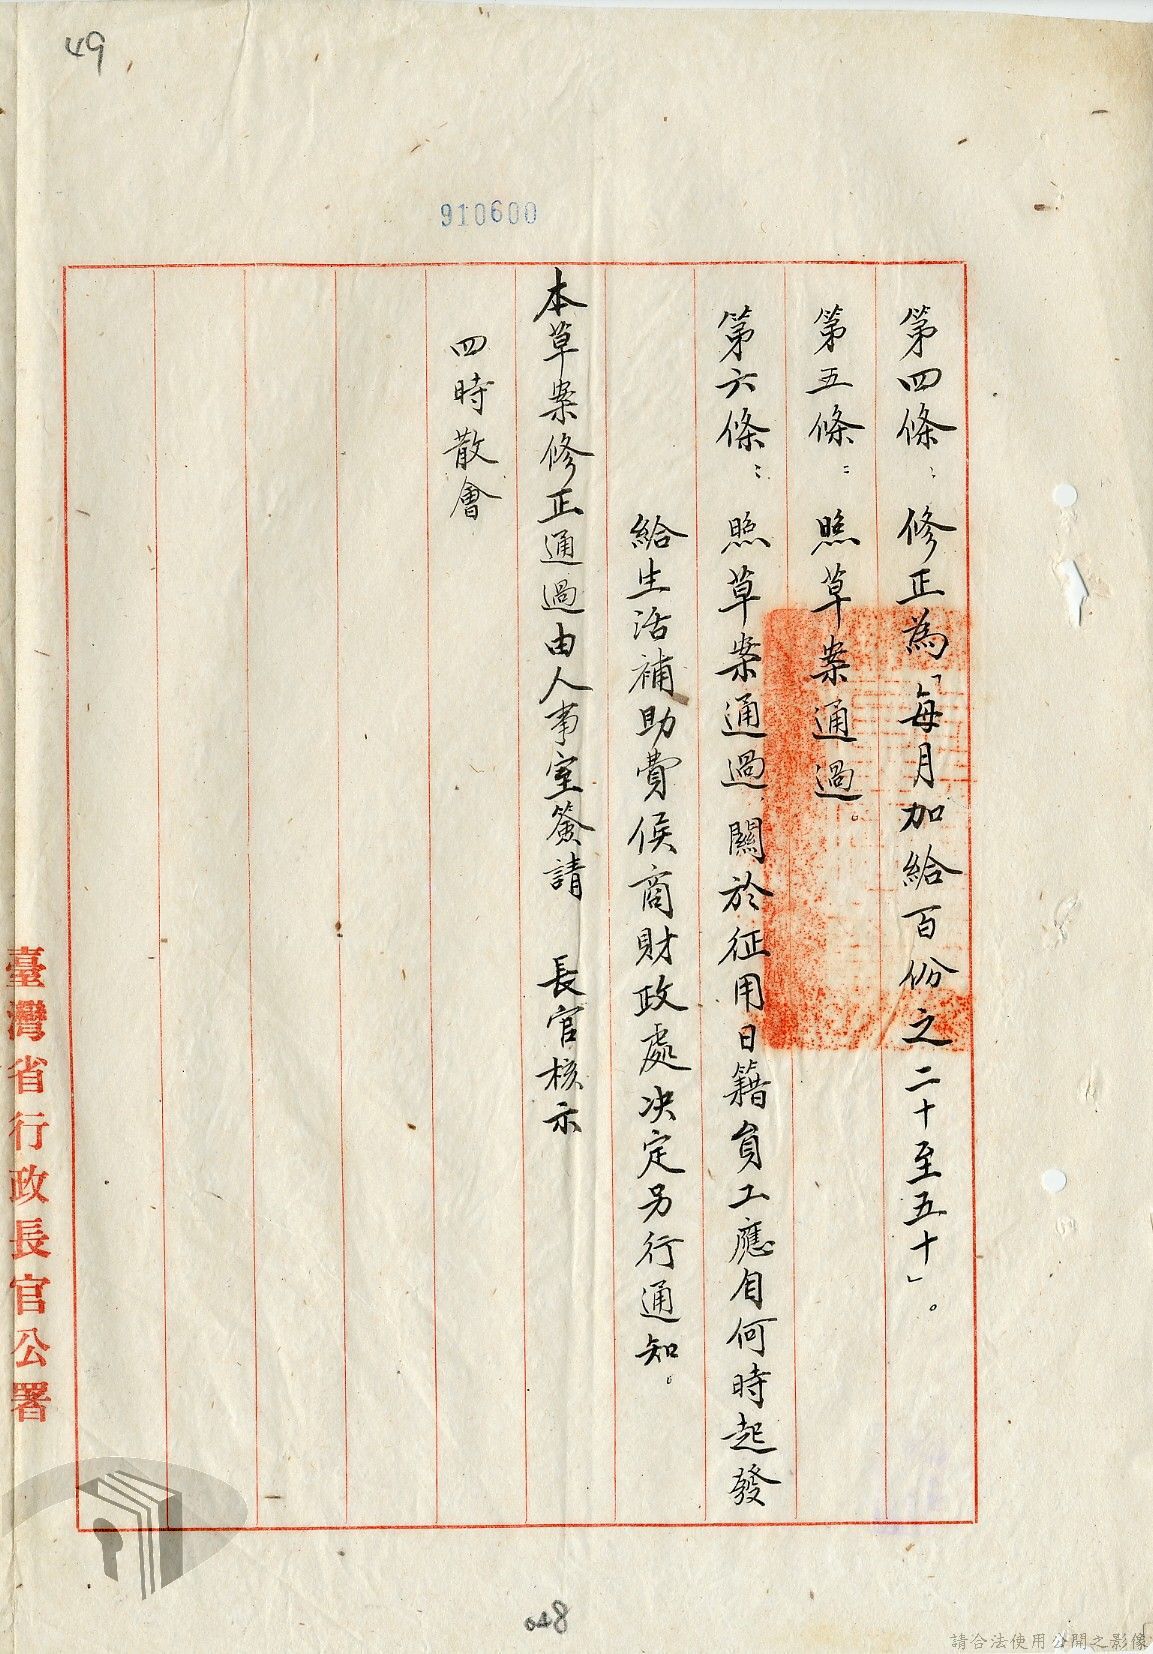 49
910600
第四條：修正為「每月加給百份之二十至五十」。
第五條：照草案通過。
第六條：照草案通過，關於征用日籍員工應自何時起發
給生活補助費俟商財政處决定另行通知。
本草案修正通過由人事室簽請　長官核示
四時散會
臺灣省行政長官公署
048
請合法使用公開之影像